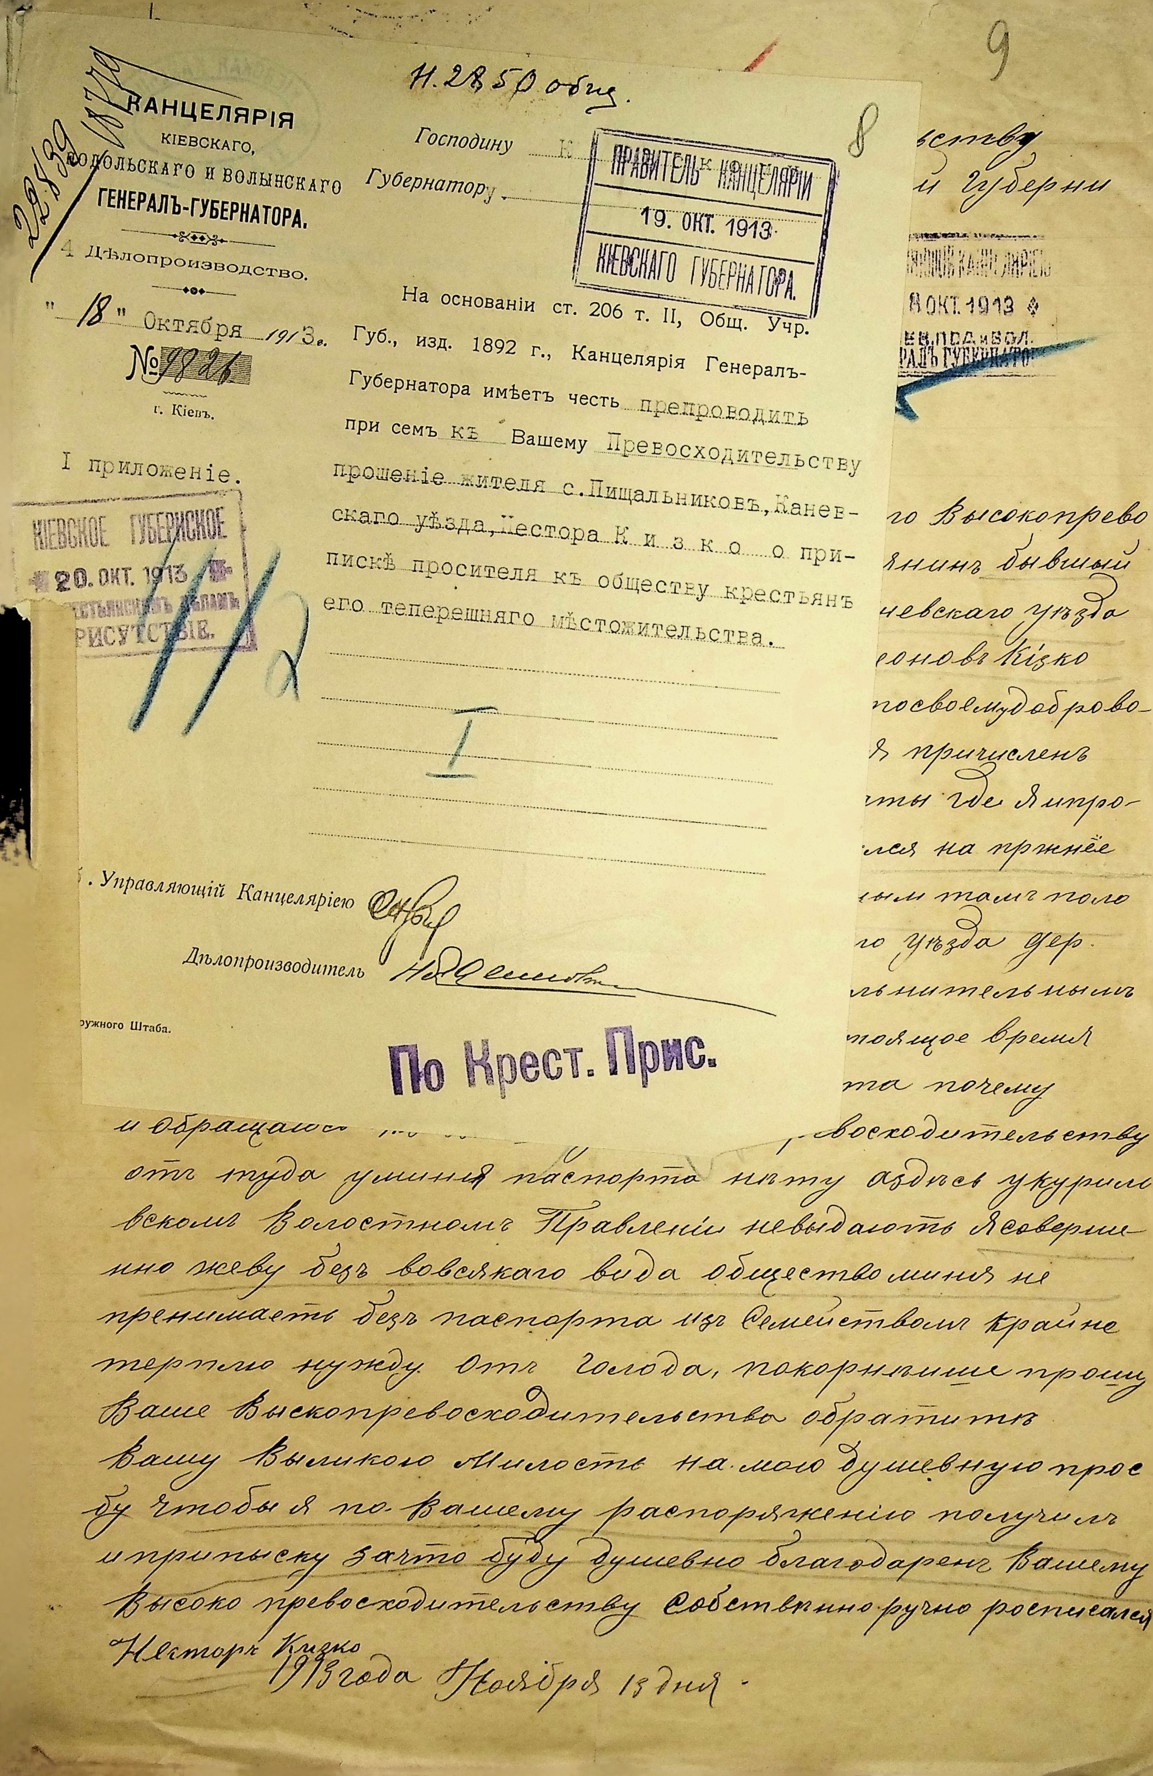 9
Н. 2850 общ.
8
22839
18779
КАНЦЕЛЯРІЯ
КІЕВСКАГО,
ПОДОЛЬСКАГО И ВОЛЫНСКАГО
ГЕНЕРАЛЪ-ГУБЕРНАТОРА.
4 Дѣлопроизводство.
" 18 " Октября 1913г.
№ 9826
г. Кіевъ.
I приложеніе.
КІЕВСКОЕ ГУБЕРНСКОЕ
20. ОКТ. 1913
ЕСТЬЯНСКИМЪ ДѢЛАМЪ
РИСУТСТВІЕ.
Господину К
Губернатору.
ПРАВИТЕЛЬ КАНЦЕЛЯРІИ
19. ОКТ. 1913
КІЕВСКАГО ГУБЕРНАТОРА.
На основаніи ст. 206 т. II, Общ. Учр.
Губ., изд. 1892 г., Канцелярія Генералъ-
Губернатора имѣетъ честь препроводить
при семъ къ Вашему Превосходительству
прошеніе жителя с.Пищальниковъ,Канев-
скаго уѣзда,Нестора К и з к о о при-
пискѣ просителя къ обществу крестьянъ
его теперешняго мѣстожительства.
112
I
. Управляющій Канцеляріею
Дѣлопроизводитель
ружного Штаба.
По Крест. Прис.
ьству
й Губерни
МНОЙ КАНЦЕЛЯРІЕЮ
8 ОКТ. 1913
ЕВ.ПОД.и ВОЛ.
РАЛЪ ГУБЕРНАТО
го Высокопрево
янинъ бывшый
чевскаго уѣзда
еоновъ Кізко
посвоемудоброво-
я причисленъ
аты где Яипро-
лся на пржнее
ным тамъ поло
го уѣзда дер.
льнительнымъ
тоящое время
та почему
и обращаюс восходительству
отъ туда уминя паспорта нѣту аздѣсь укурило
вскомъ Волостномъ Правленіи невыдаютъ Ясоверше
нно жеву безъ вовсякаго вида обществоминя не
пренимаеть безъ паспорта изъ Семействомъ крайне
терплю нужду отъ голода, покорнѣише прошу
Ваше Выскопревосходительство обратитъ
Вашу Выликою Милость на мою душевную прос
бу чтобы я по Вашему распоряженію получилъ
иприпыску зачто буду душевно благодаренъ Вашему
Высоко превосходительству Собствѣнно ручно росписался
Несторъ Кизко
1913 года Ноября 13 дня